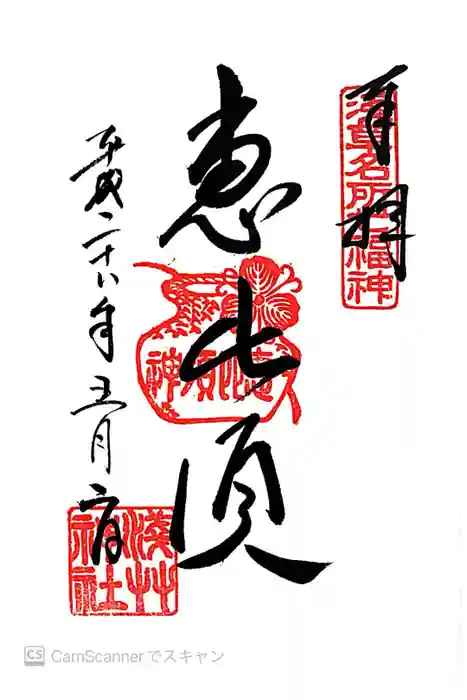 奉拝
浅草名所七福神
恵比須
恵比須神
平成二十八年五月二日
浅草神社
CS CamScannerでスキャン